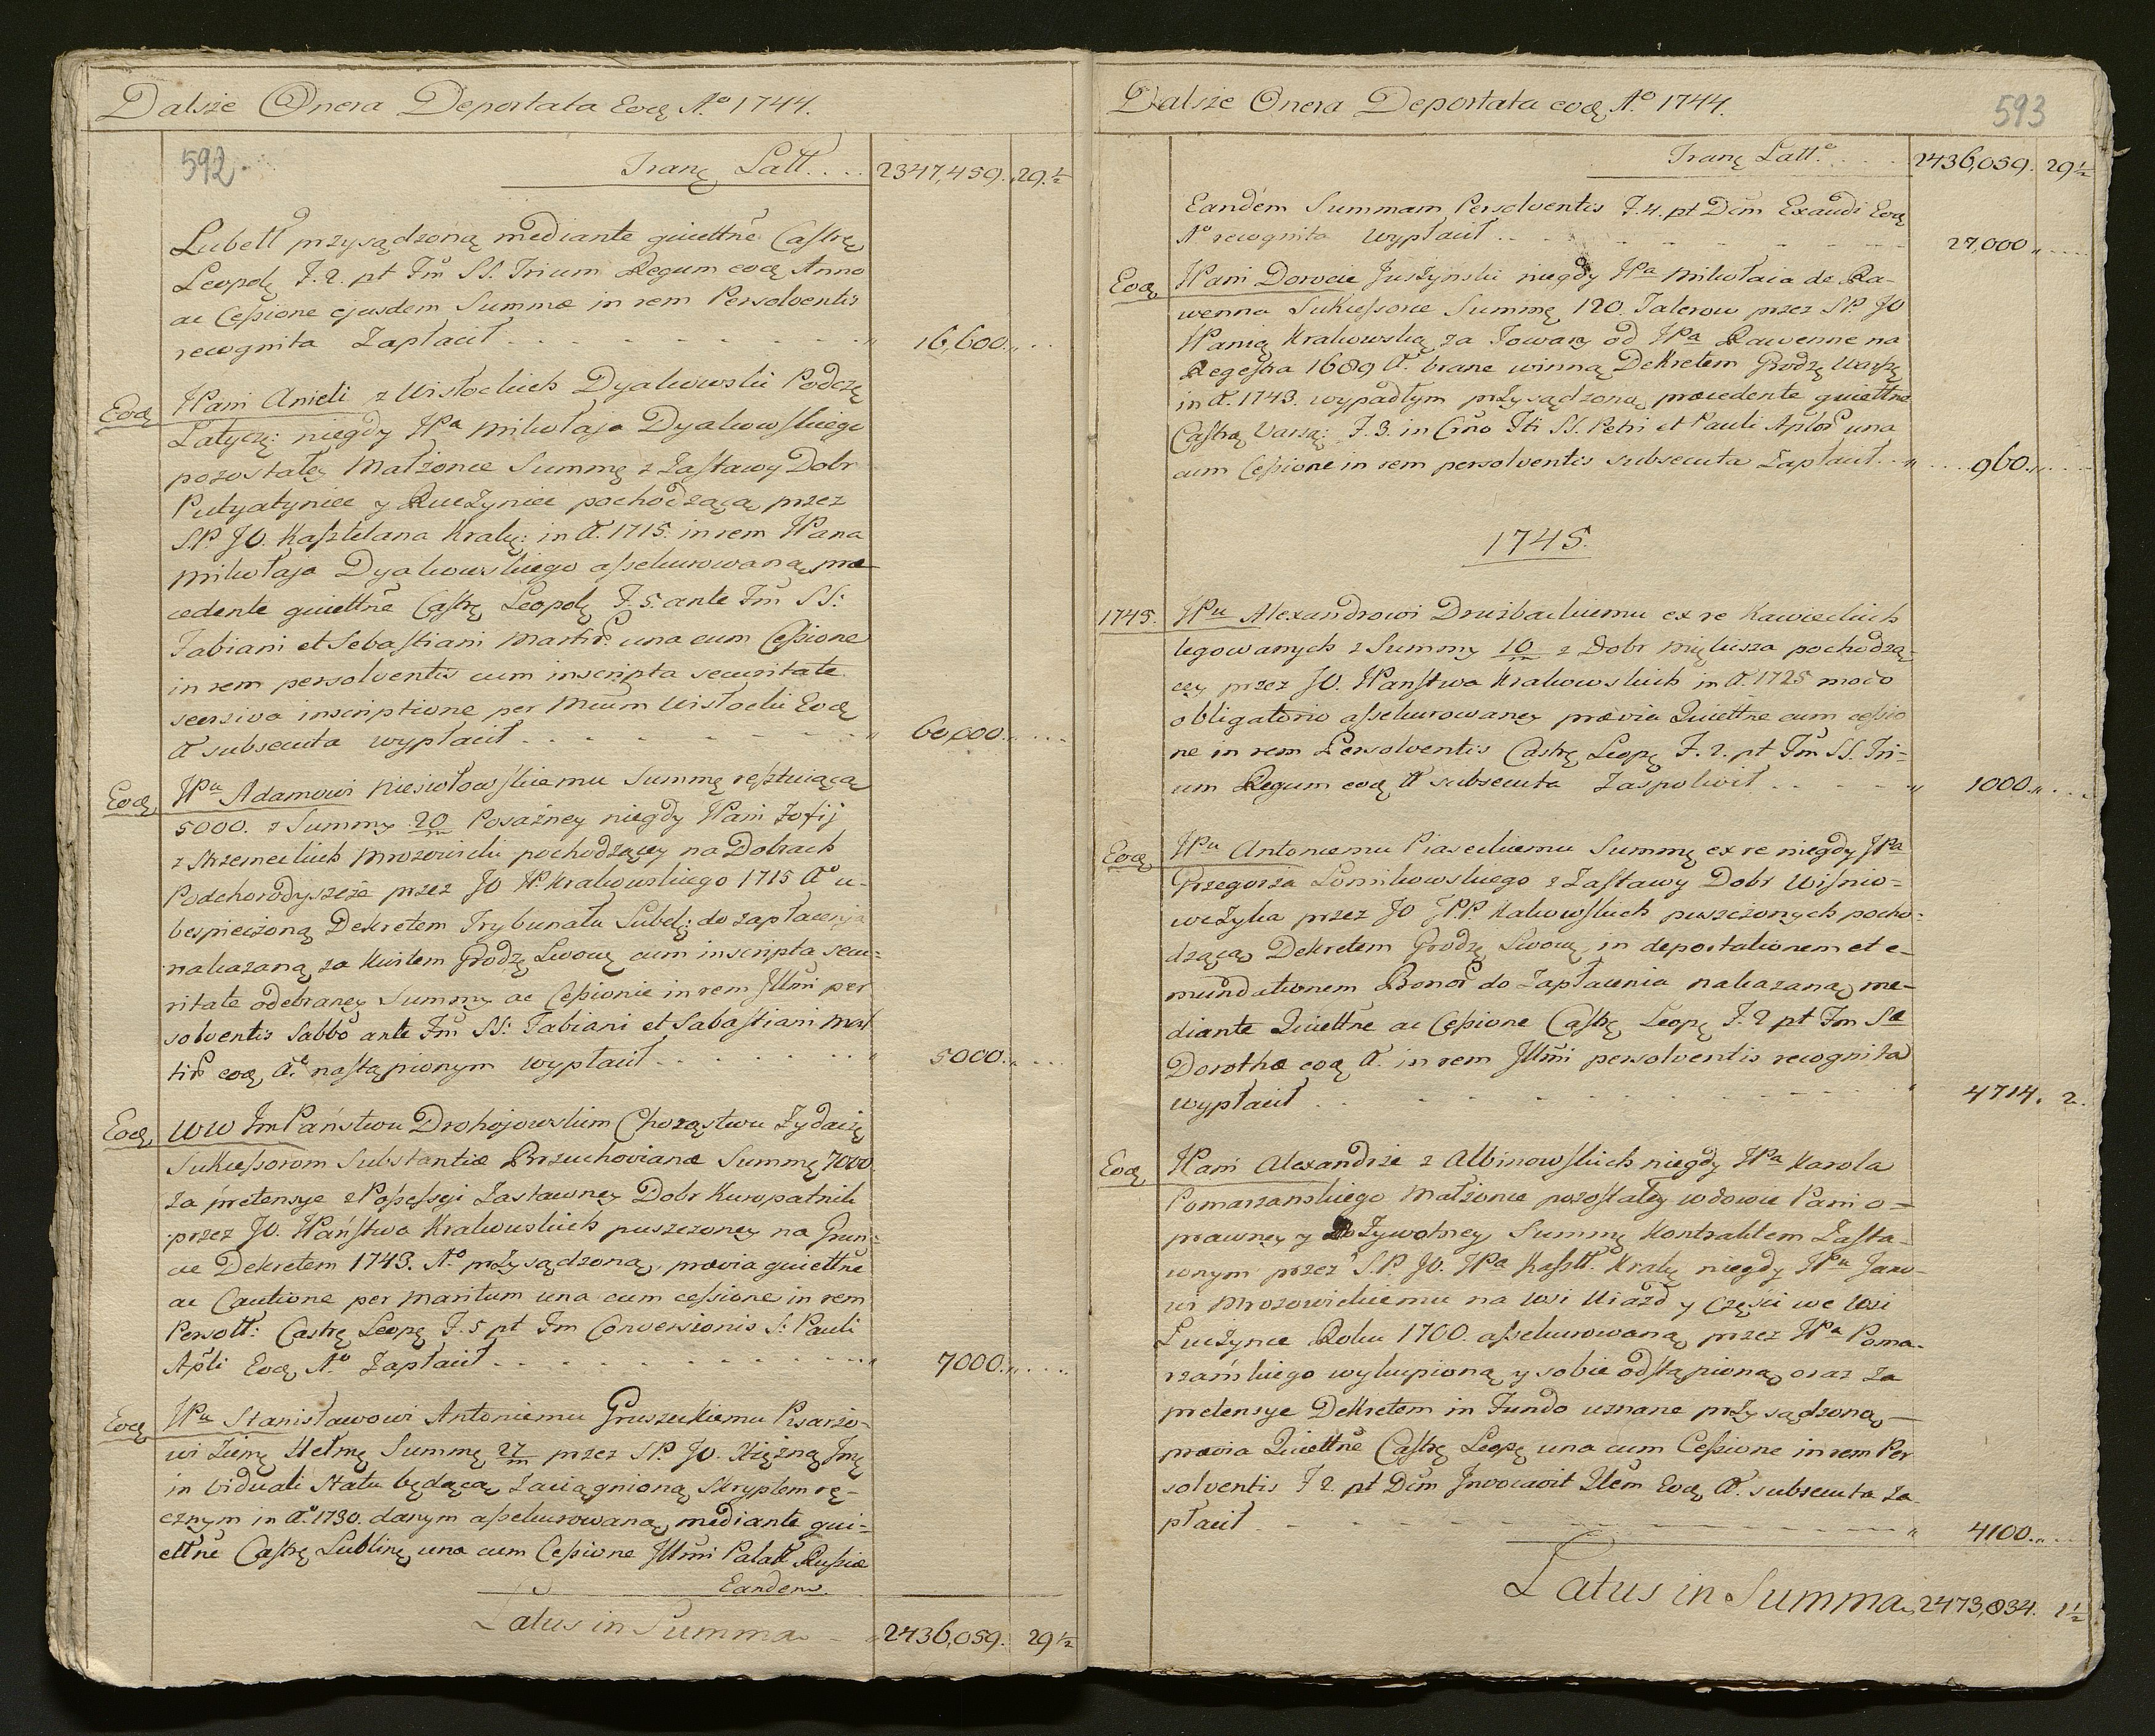 Dalsze Onera Deportata Eoq A° 1744.
592.
Tranę Latt. . . . 2347,459. „29. ½
Lubell przysądzoną mediante quiettne Castrę
Leopolę F. 2. pt Fm SS. Trium Regum eoq Anno
ac Cessione ejusdem Summæ in rem Persolventis
recognita Zapłacił . . . . . . . . . „ 16,600. „ . .
Eoq JPani Anieli z Wisłockich Dyakowski Podczę
Latyczę: niegdy JPa Mikołaja Dyakowskiego
pozostałey Małżonce Summę z Zastawy Dobr
Putyatyniec y Ruczyniec pochodzącą przez
S.P. JO. Kasztelana Krakę: in A. 1715. in rem JPana
Mikołaja Dyakowskiego assekurowaną, præ-
cedente quiettne Castrę Leopolę F. 5. ante Fm SS:
Fabiani et Sebastiani Martir. una cum Cessione
in rem persolventis cum inscripta securitate
seorsiva inscriptione per Mcum Wisłocki Eoq
A subsecuta wypłacił . . . . . . . „ 60,000. „ . . .
Eoq JPu Adamowi Niesiołowskiemu Summę resztuiącą
5000. z Summy 20/m Posażney niegdy JPani Zofij
z Strzemeckich Mrozowicki pochodzącey na Dobrach
Podchorodyszcze przez JO JP. Krakowskiego 1715 A° u-
bespieczoną Dekretem Trybunału Lubelę: do zapłacenja
nakazaną, za Kwitem Grodzę Lwowę cum inscripta secu-
ritate odebraney Summy ac Cessionie in rem Jllmi per
solventis Sabbo ante Fm SS: Fabiani et Sabastiani Mar
tir eoq A° nastąpionym wypłacił . . . . . . . „ 5000. „ . . .
Eoq WW JmPaństwu Drohojowskim Chorąstwu Żydaczę
Sukcessorom Substantiæ Brzuchovianæ Summę 7000.
za pretensye z Possessyi Zastawney Dobr Kuropatnik
przez JO. JPaństwa Krakowskich puszczoney na Grun-
cie Dekretem 1743. A° przysądzoną, prævia quiettne
ac Cautione per maritum una cum cessione in rem
Persoll: Castrę Leopę F. 5 pt Fm Conversionis S: Pauli
Apli Eoq A° Zapłacił . . . . . . . . . . . „ 7000. „ . . . .
Eoq JPu Stanisławowi Antoniemu Gruszeckiemu Pisarzo-
wi Ziemę Hełmę Summę 27/m przez SP. JO. Xiężną Jmę
in viduali statu będącą, zaciągnioną, Skryptem rę-
cznym in A° 1730. danym assekurowaną, mediante qui-
ettne Castrę Lublinę una cum Cessione Jllmi Palatt Russiæ
Eandem.
Latus in Summa „ 2436,059. 29 ½
Dalsze Onera Deportata eoq A° 1744.
593
Tranę Latt. . . . 2436,059. 29 ½
Eandem Summam Persolventis F. 4. pt Dcm Exaudi Eoq
A° recognita wypłacił . . . . . . . . . 27,000 „ . . . .
Eoq JPani Dorocie Juszynski niegdy JPa Mikołaia de Ra-
wenna Sukcessorce Summę 120. Talerow przez SP. JO
JPanią Krakowską za Towary od JPa Rawenne na
Regestra 1689 A. brane winną Dekretem Grodzę Warszę
in A. 1743. wypadłym przysądzoną, præcedente quiettne
Castrę Varsa: F. 3. in Crno Fti SS. Petri et Pauli Aplor una
cum Cessione in rem persolventis subsecuta Zapłacił . . „ . . . . 960. „ . . . .
1745.
1745. JPu Alexandrowi Druzbackiemu ex re Kawieckich
legowanych z Summy 10/m z Dobr Międusza pochodzą-
cey przez JO. JPanstwa Krakowskich in A. 1725 modo
obligatorio assekurowaney prævia Quiettne cum cessio
ne in rem Persolventis Castrę Leopę F. 2. pt Fm SS. Tri-
um Regum eoq A subsecuta Zaspokoił . . . . . „ 1000. „ . . .
Eoq JPu Antoniemu Piaseckiemu Summę ex re niegdy JPa
Grzegorza Łomikowskiego z Zastawy Dobr Wisnio-
wczyka przez JO JPP. Kakowskich puszczonych pocho-
dzącą Dekretem Grodzę Lwowę in deportationem et e-
mundationem Bonor do Zapłacenia nakazaną, me-
diante Quiettne ac Cessione Castrę Leopę F. 2 pt Fm Sæ
Dorothæ eoq A. in rem Jllmi persolventis recognita
wypłacił . . . . . . . . . . . . . . „ 4714. 2.
Eoq JPani Alexandrze z Albinowskich niegdy JPa Karola
Pomarzanskiego Małżonce pozostałey wdowie Pani o-
prawney y dożywotney Summę Kontraktem Zasta-
wnym przez S.P JO. JPa Kasztt. Krakę niegdy JPu Jano-
wi Mrozowickiemu na Wsi Uiazd y Części we Wsi
Luczyńce Roku 1700. assekurowaną, przez JPa Poma-
rzańskiego wykupioną y sobie odstąpioną, oraz za
pretensye Dekretem in Fundo uznane przysądzoną,—
prævia Quiettne Castrę Leopę una cum Cessione in rem Per
solventis F 2. pt Dcm Jnvocavit Item Eoq A. subsecuta za-
płacił . . . . . . . . . . . . „ 4100. „ . . .
Latus in Summa, 2473,834. 1 ½